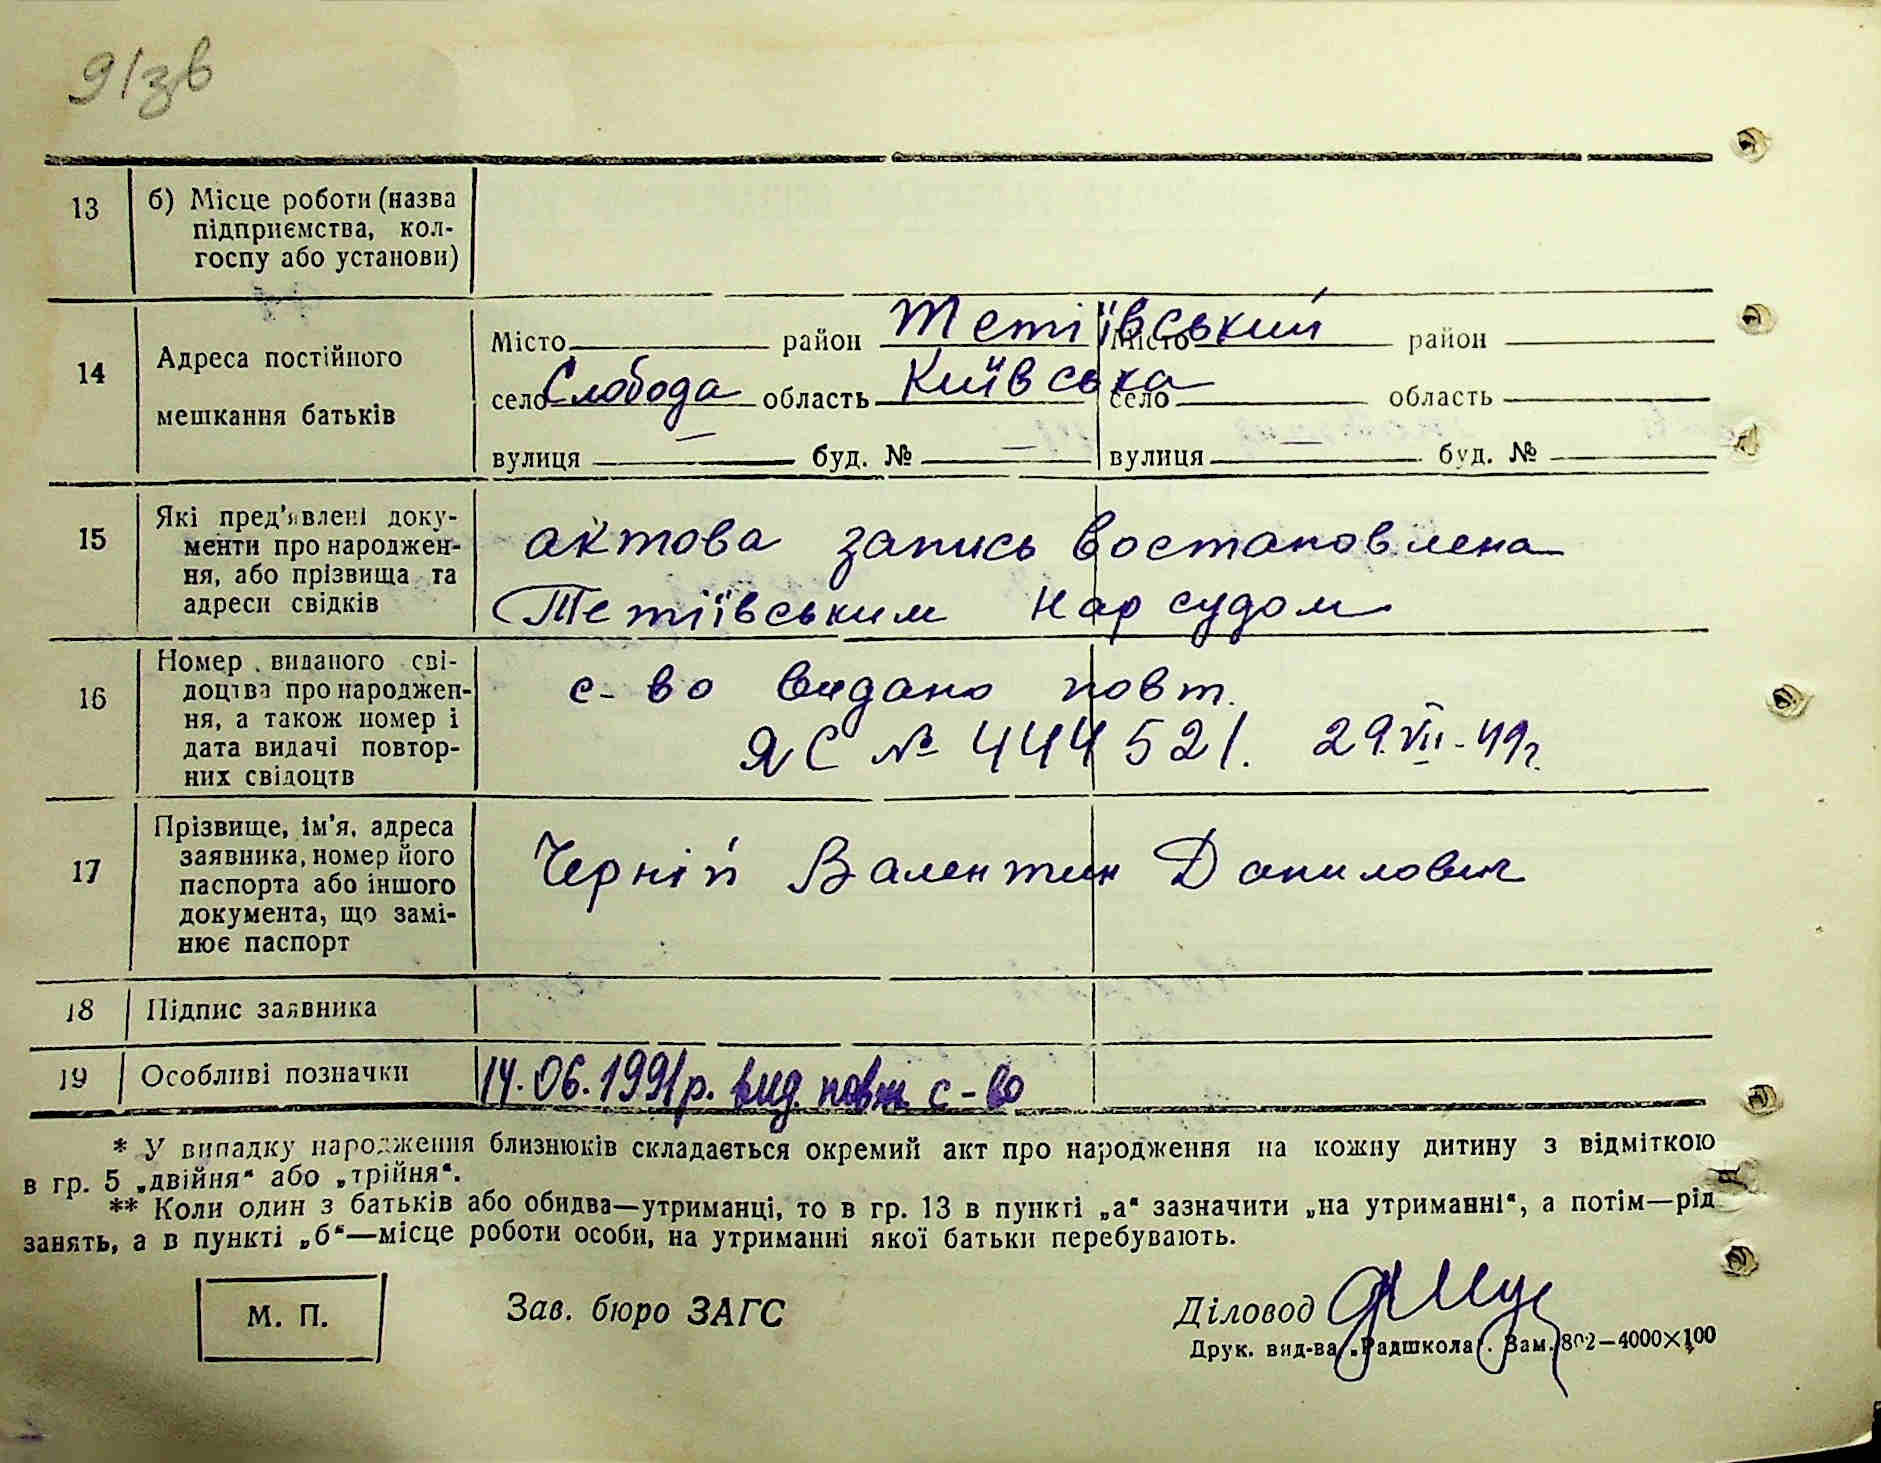 91зв
13 б) Місце роботи (назва
підприємства, кол-
госпу або установи)
14 Адреса постійного
мешкання батьків
Місто район Тетіївський Місто район
село Слобода область Київська село область
вулиця — буд. № — вулиця буд. №
15 Які пред'явлені доку-
менти про народжен-
ня, або прізвища та
адреси свідків
актова запись востановлена
Тетіївським Нар судом
16 Номер виданого сві-
доцтва про народжен-
ня, а також номер і
дата видачі повтор-
них свідоцтв
с-во видано повт.
ЯС № 444521. 29.VII-49г.
17 Прізвище, ім'я, адреса
заявника, номер його
паспорта або іншого
документа, що замі-
нює паспорт
Черній Валентин Данилович
18 Підпис заявника
19 Особливі позначки 14.06.1991р. вид. повт с-во
* У випадку народження близнюків складається окремий акт про народження на кожну дитину з відміткою
в гр. 5 „двійня“ або „трійня“.
** Коли один з батьків або обидва—утриманці, то в гр. 13 в пункті „а“ зазначити „на утриманні“, а потім—рід
занять, а в пункті „б“—місце роботи особи, на утриманні якої батьки перебувають.
М. П. Зав. бюро ЗАГС Діловод
Друк. вид-ва „Радшкола“. Зам. 802—4000×100